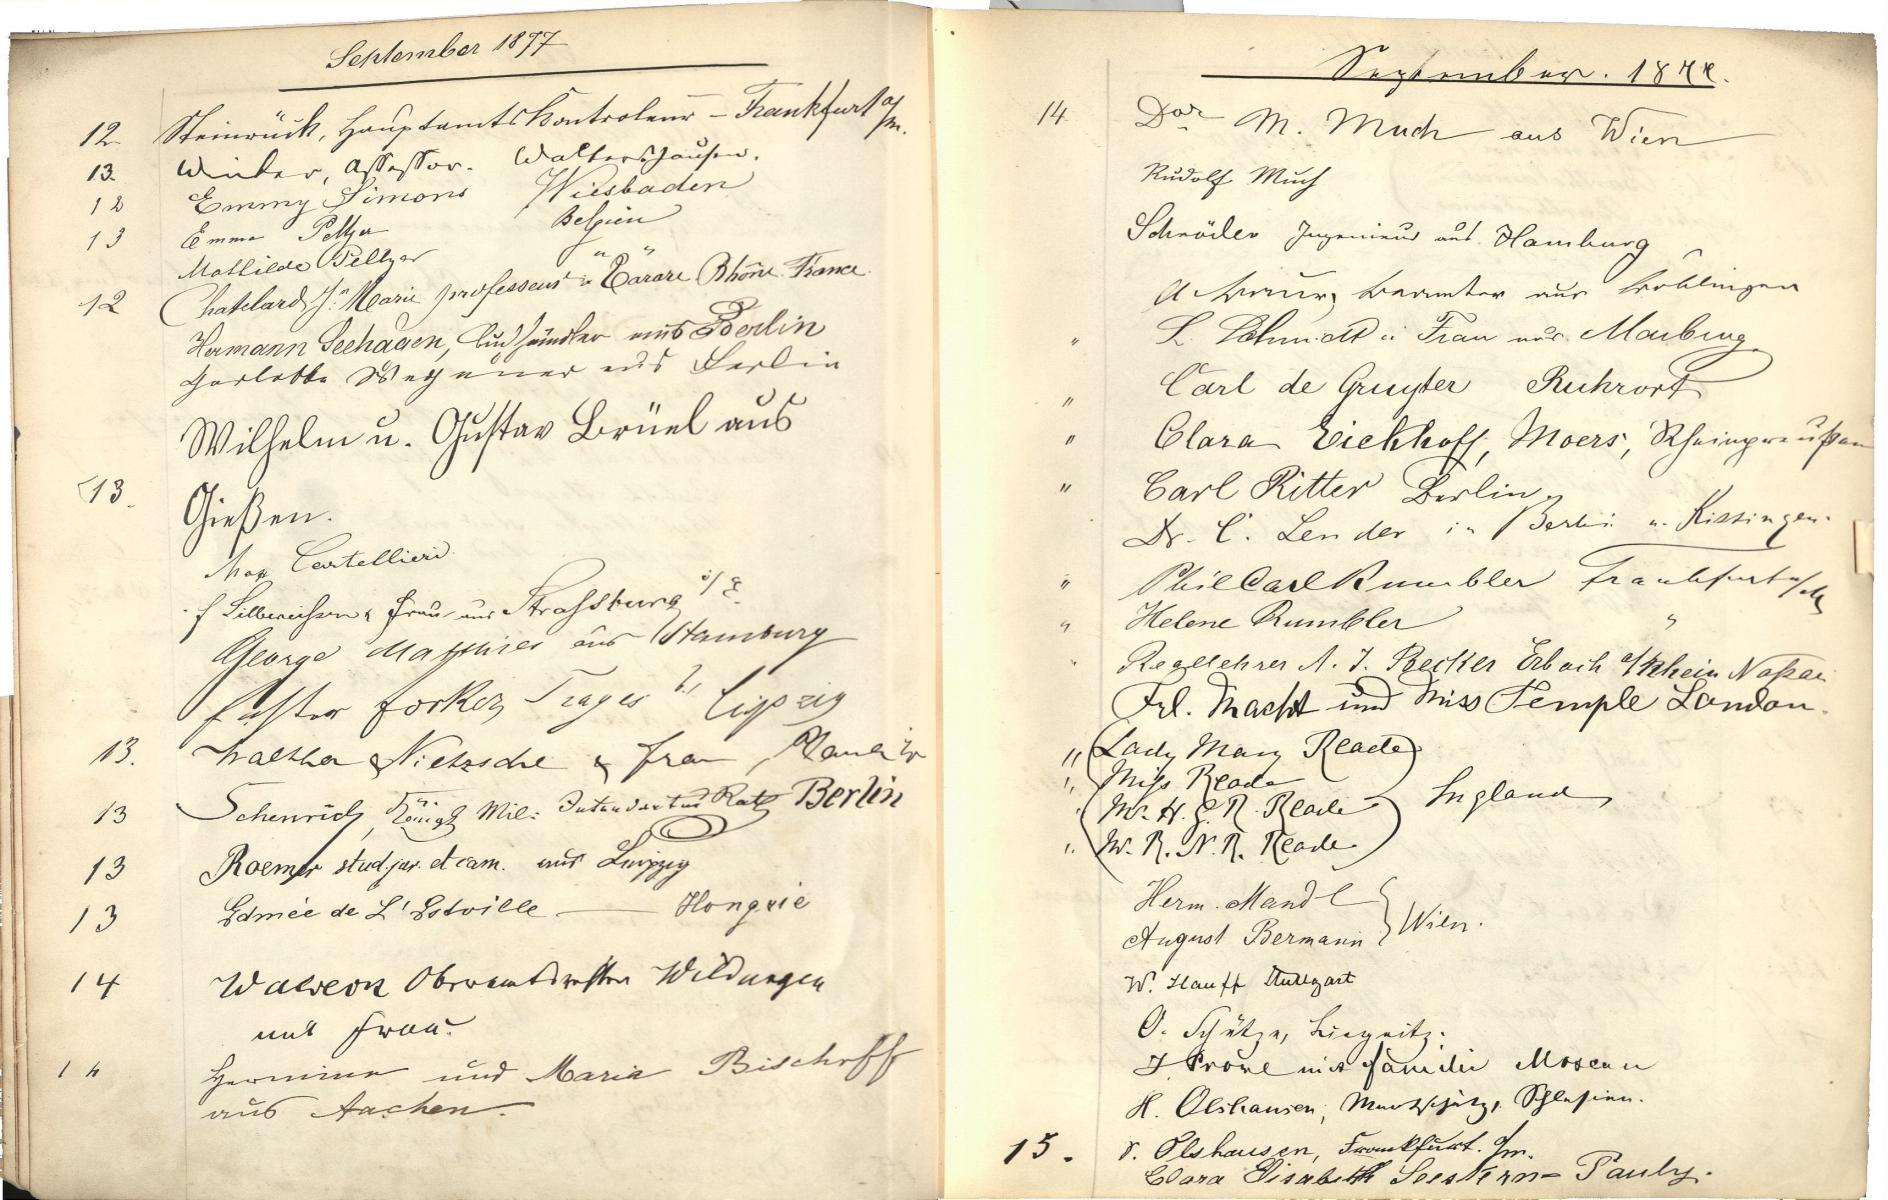 September 1877
12 Steinrück, Hauptamts Kontroleur – Frankfurt a/m.
13. Winter, Assessor. Waltershausen.
12 Emmy Simons Wiesbaden
13 Emma Peltzer Belgien
Mathilde Peltzer " "
12 Chatelard J. Marie professeur Tarare Rhône France.
Hermann Seehagen, aus Berlin
aus Berlin
Wilhelm u. Gustav Brüel aus
13. Gießen.
Max Cartellieri
f Silbereisen & Frau aus Strassburg i/E.
George Matthies aus Hamburg
Pastor Leipzig
13. Walther Nietzsche & Frau,
13 Schenrich, Königl Mil: Intendantur Rath Berlin
13 Roemer stud. jur. et cam. aus Leipzig
13 Edmée de L'Estville — Hongrie
14 Wildungen
mit Frau.
14 Hermine und Maria Bischoff
aus Aachen.
September. 1877.
14 Dor M. Much aus Wien
Rudolf Much
Schröder Ingenieur aus Hamburg
A aus
" L. Schmidt u Frau aus Marburg
" Carl de Gruyter Ruhrort
" Clara Eickhoff, Moers, Rheinpreußen
" Carl Ritter Berlin.
Dr. C. Lender in Berlin u. Kissingen.
" Phil Carl Rumbler Frankfurt a/M
" Helene Rumbler "
" Reallehrer A. J. Becker Erbach a/Rhein Naßau
Frl. Macht und Miss Temple London.
" Lady Mary Reade
" Miss Reade
" Mr. H. G. R. Reade England
" Mr. R. N. R. Reade
Herm. Mandl
August Bermann Wien.
W. Hauff Stuttgart
O. Schütze, Liegnitz.
J Prowe mit Familie Moscau
H. Olshausen, Schlesien.
15. v. Olshausen, Frankfurt a/m.
Clara Elisabeth Seestern-Pauly.